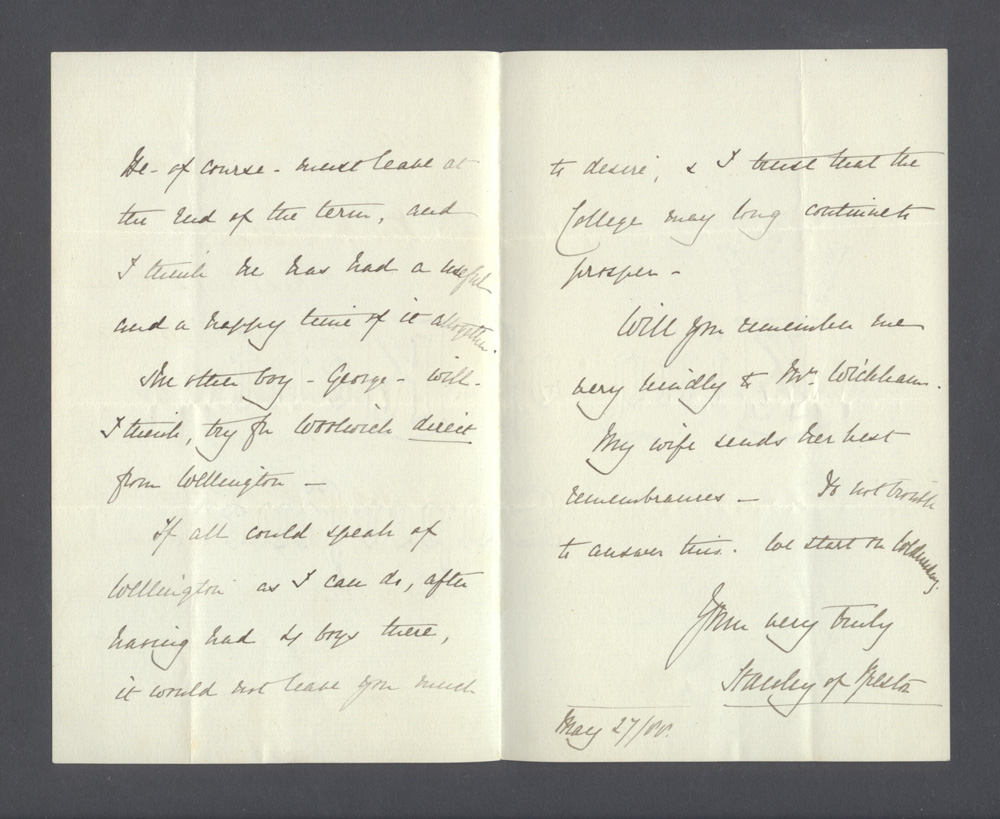 He - of course - must leave at
the end of the term, and
I think he has had a useful
and a happy time of it altogether.
The other boy - George - will -
I think, try for Woolwich direct
from Wellington -
If all could speak of
Wellington as I can do, after
having had 4 boys there,
it would not leave you much
to desire, & I trust that the
College may long continue to
prosper -
Will you remember me
very kindly to Mrs. Wickham.
My wife sends her best
remembrances - Do not trouble
to answer this. We start on Wednesday.
Yours very truly
Stanley of Preston
May 27/88.